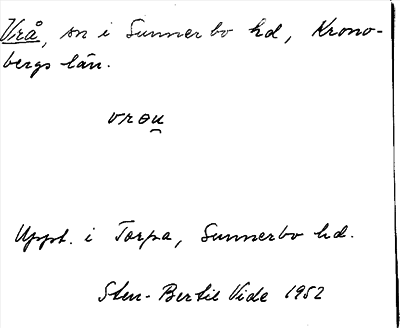 Vrå, sn i Sunnerbo hd, Krono-
bergs län.
vrɵu̯
Uppt. i Torpa, Sunnerbo hd.
Sten-Bertil Vide 1952